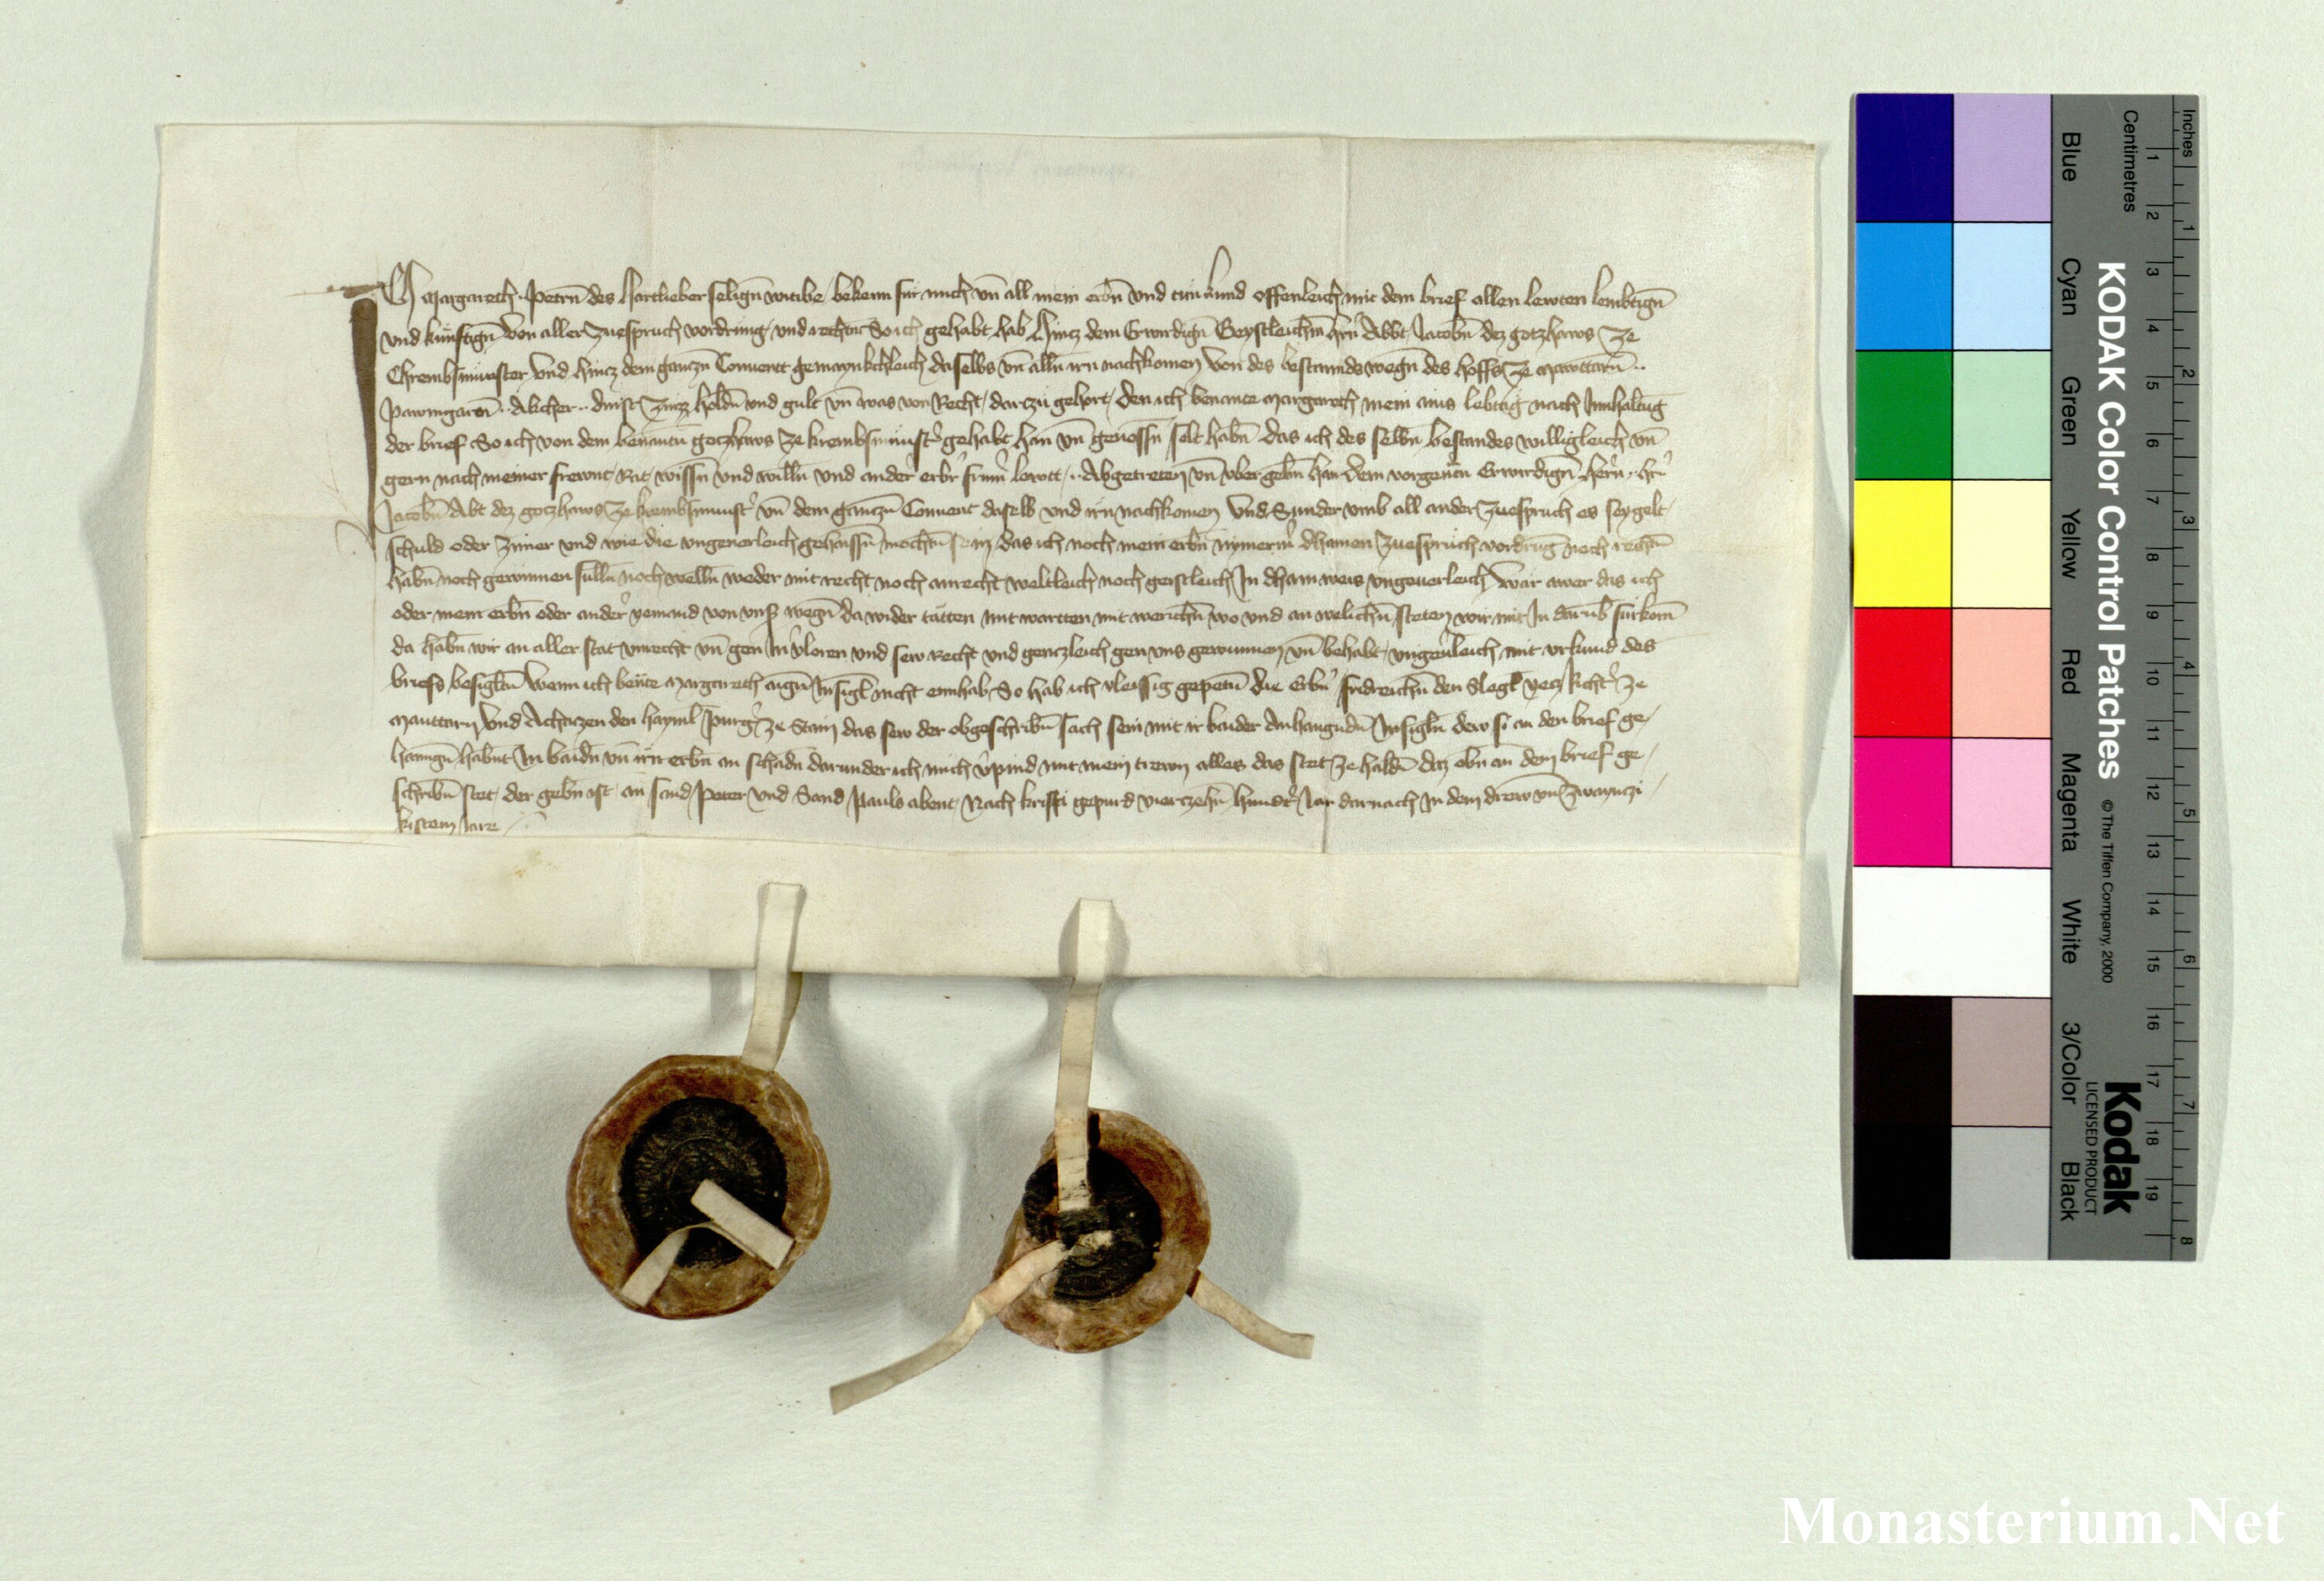 Ich Margareth Petrn̄ des Hartlieber selign̄ witibe bekenn fur mich vn̄ all mein erbn̄ vnd tun kund offenleich mit dem brief allen lewten lembtign̄
vnd kunftign̄ von aller zuespruch vordrung vnd rechtn̄ So ich gehabt hab hincz dem Erwirdign̄ Geystleichn̄ hrn̄ Abbt Jacobn̄ dez gotzhaws ze
Chrembsmunster vnd hincz dem ganczn̄ Conuent gemaynkchleich daselbs vn̄ alln̄ irn nachkomen von des bestannds wegn̄ des hoffs ze Mawttarn̄
Pawmgartn̄ Akcher dinst zinz holdn̄ vnd gult vn̄ was von Recht darczu gehort den ich benante Margareth mein ains lebtag nach Innhaltūg
der brief So ich von dem benantn̄ gotzhaws ze krembsmunster gehabt han vn̄ genossn̄ solt habn̄ Das ich des selbn̄ bestandes willigleich vn̄
gern nach meiner frewnt Rat wissn̄ vnd willn̄ vnd ander erbr frum̄ lewtt Abgetreten vn̄ vber gebn̄ han dem vorgen̄tn Erwirdign̄ hern hrn̄
Jacobn̄ Abt dez gotzhaws ze krembsmunster vn̄ dem ganczn̄ Conuent daselb vnd irn nachkomen Vnd Sunder vmb all ander zuespruch es sey gelt
schuld oder zinner vnd wie die vngeuerleich gehaissn̄ mochtn̄ sein das ich noch mein erbn̄ nymerm̄ dhainen zuespruch vordrūg noch rechtn̄
habn̄ noch gewinnen sulln̄ noch welln̄ weder mit recht noch anrecht weltleich noch geistleich In dhain weis vngeuerleich War awer das ich
oder mein erbn̄ oder ander yemand von vnsern wegn̄ da wider tatten mit wartten mit werichn̄ wo vnd an welichn̄ steten wir mit In darub furkom̄
da habn̄ wir an aller stat vnrecht vn̄ gen In vloren vnd sew Recht vnd genczleich gen vns gewunnen vn̄ behabt vngeuleich mit vrkund des
briefs besigltn̄ Wenn ich ben̄te Margareth aign̄ Insigl nicht enhab So hab ich vleissig gepetn̄ die Erbn̄ fridreichn̄ den Slegl yecz Richter ze
Mauttarn vnd Achaczen den hayml Purger ze Stain das sew der obgeschribn̄ sach sein mit ir baider Anhangundn̄ Insigln̄ dew si an den brief ge
hanngn̄ habnt In baidn̄ vn̄ irn erbn̄ an schadn̄ darunder ich mich vpind mit mein trewn alles das stet ze haldn̄ daz obn̄ an dem brief ge
schribn̄ stet der gebn̄ ist an sand Peter vnd Sand Pauls abent Nach kristi gepurd vierczehn̄ hundert Jar darnach In dem drew vn̄ zwaynczi
kistem Jare
KODAK Color Control Patches
© The Tiffen Company, 2000
Kodak
LICENSED PRODUCT
Blue Cyan Green Yellow Red Magenta White 3/Color Black
Inches
1 2 3 4 5 6 7 8
Centimetres
1 2 3 4 5 6 7 8 9 10 11 12 13 14 15 16 17 18 19
Monasterium.Net